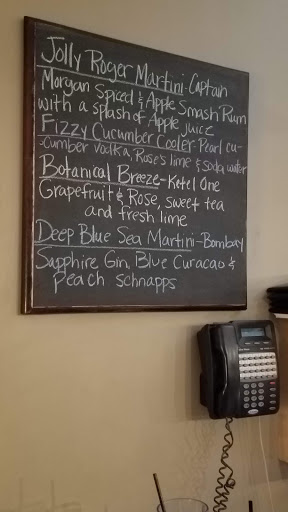 Jolly Roger Martini-Captain
Morgan Spiced & Apple Smash Rum
with a splash of Apple juice
Fizzy Cucumber Cooler-Pearl cu-
-cumber vodka, Rose's lime & Soda water
Botanical Breeze-Ketel One
Grapefruit & Rose, sweet tea
and fresh lime
Deep Blue Sea Martini-Bombay
Sapphire Gin, Blue Curacao &
Peach schnapps